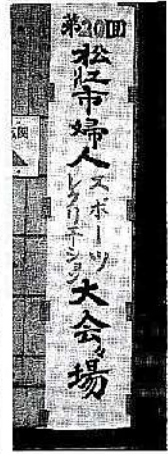 第30回
松江市婦人スポーツレクリエーション大会々場